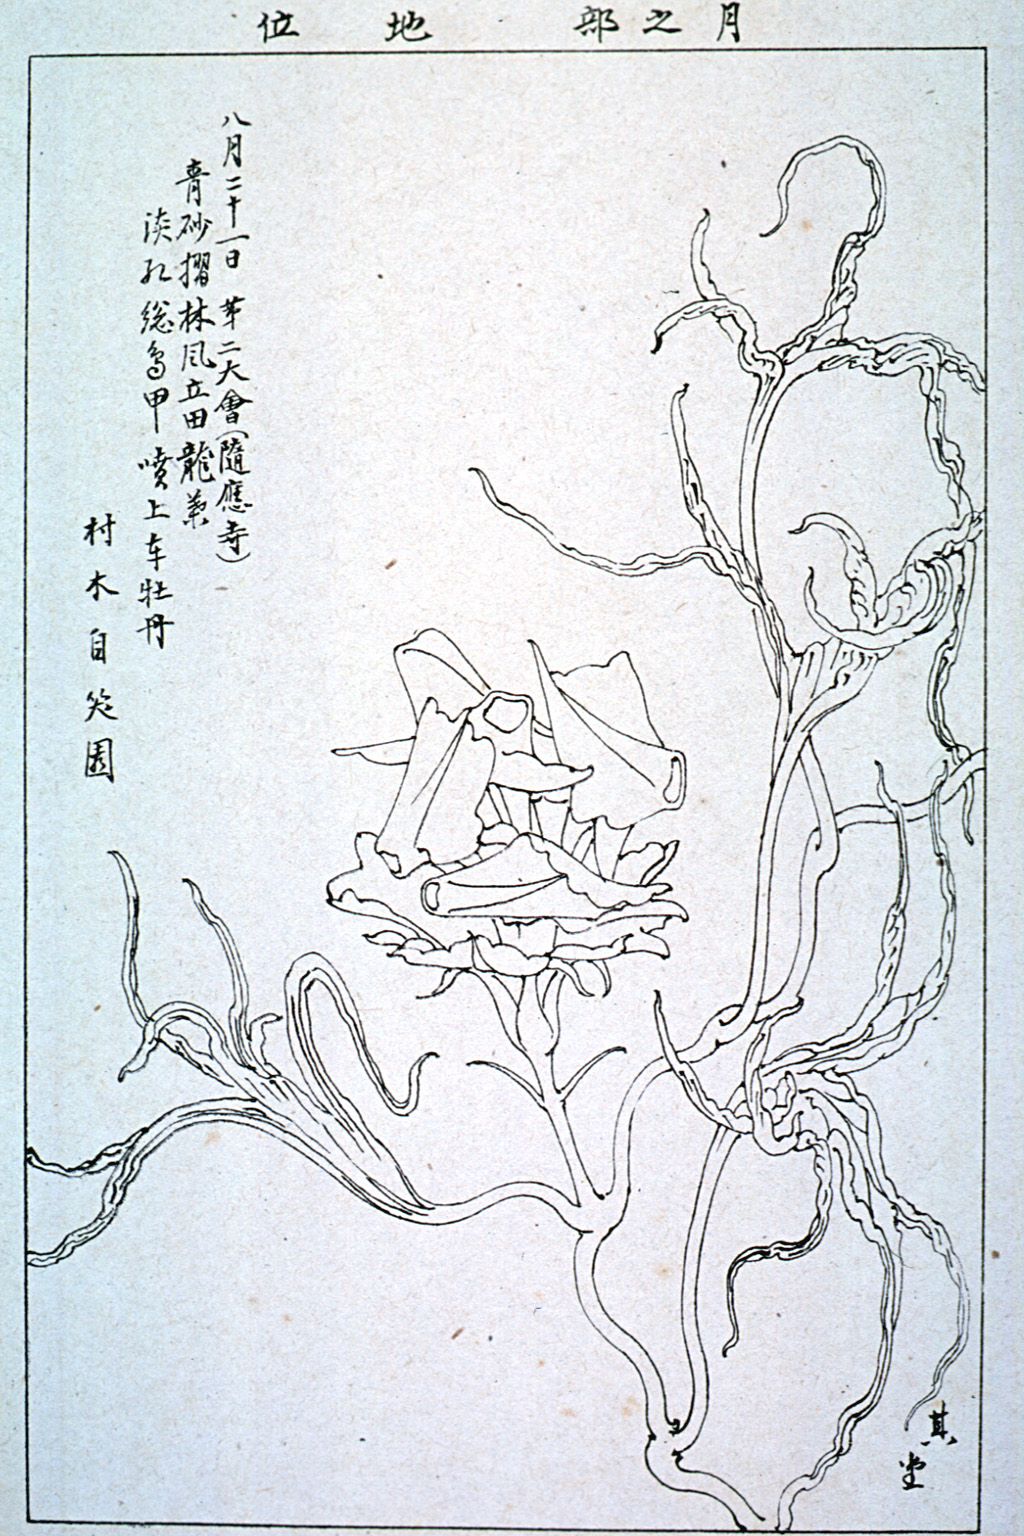 月之部 地位
八月二十一日 第二大會(隨應寺)
青砂摺林風立田龍葉
淡紅総鳥甲噴上車牡丹
村木自笑園
其堂